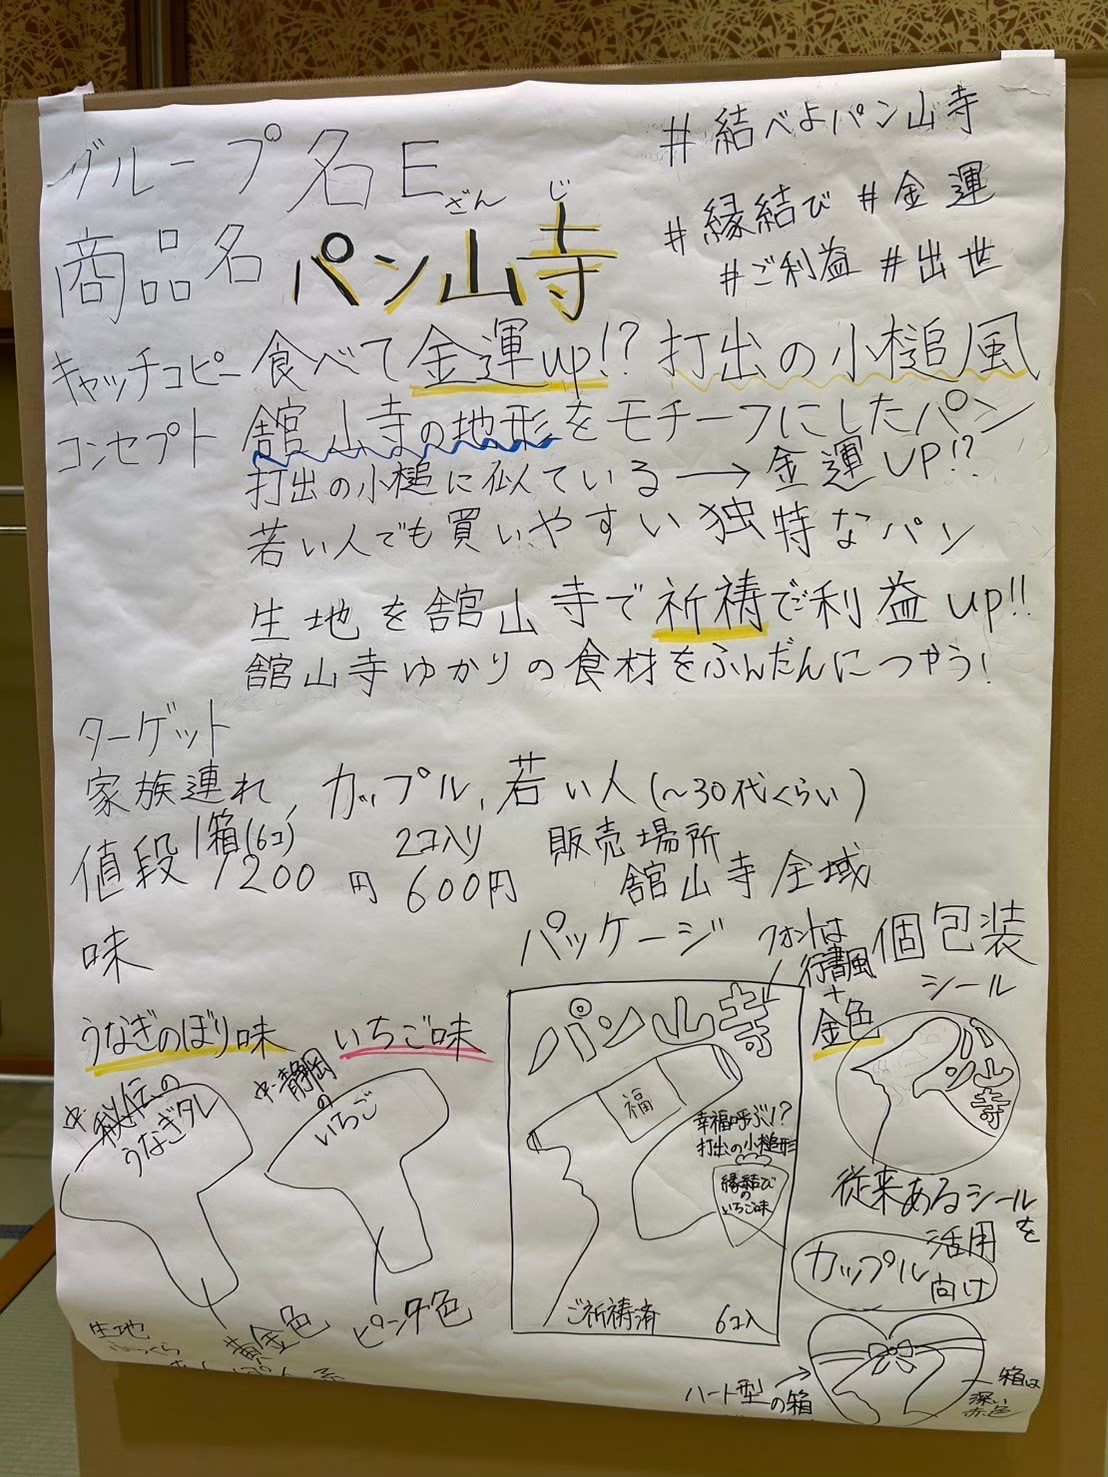 グループ名 E
商品名 パン山寺
ざんじ
#結べよパン山寺
#縁結び #金運
#ご利益 #出世
キャッチコピー 食べて金運up!? 打出の小槌風
コンセプト 舘山寺の地形をモチーフにしたパン
打出の小槌に似ている→金運UP!?
若い人でも買いやすい独特なパン
生地を舘山寺で祈祷でご利益up!!
舘山寺ゆかりの食材をふんだんにつかう!
ターゲット
家族連れ、カップル、若い人(~30代くらい)
値段 1箱(6コ) 1200円 2コ入り 600円
販売場所
舘山寺全域
味
うなぎのぼり味
中・秘伝の
うなぎタレ
いちご味
中・静岡
の
いちご
生地
黄金色
ピンク色
パッケージ
フォントは
行書風
+
金色
パン山寺
福
幸福呼ぶ!?
打出の小槌形
縁結び
の
いちご味
ご祈祷済 6コ入
個包装
シール
パン山寺
従来あるシール
を
活用
カップル向け
ハート型
の箱
箱は
深い
赤色